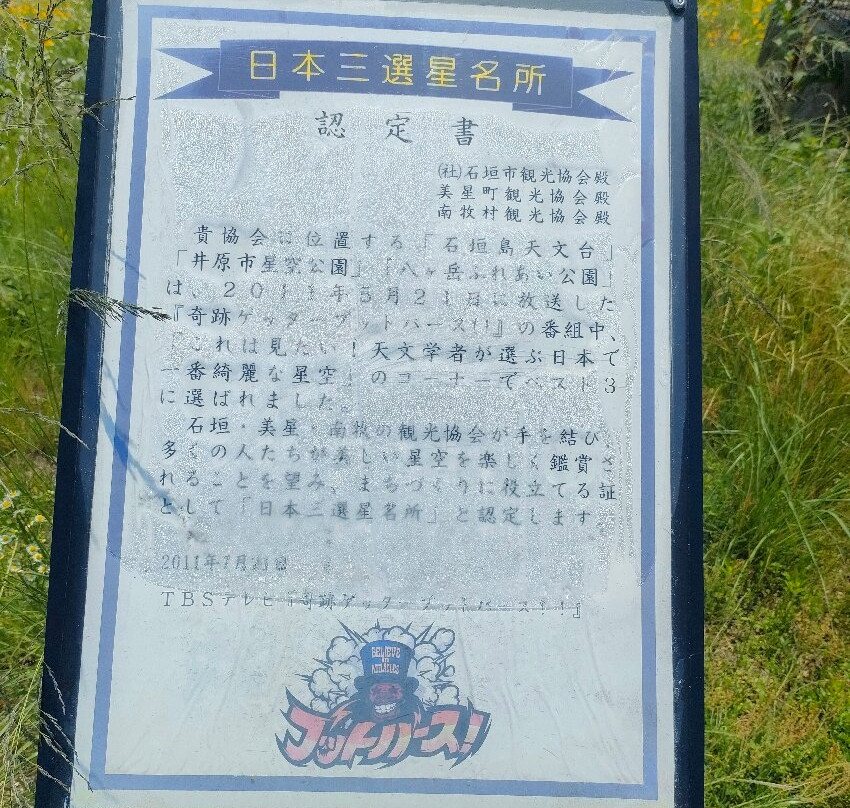 日本三選星名所
認定書
㈳石垣市観光協会殿
美星町観光協会殿
南牧村観光協会殿
貴協会に位置する「石垣島天文台」
「井原市星空公園」「八ヶ岳ふれあい公園」
は、2011年5月21日に放送した
『奇跡ゲッターブットバース!!』の番組中、
「これは見たい!天文学者が選ぶ日本で
一番綺麗な星空」のコーナーでベスト3
に選ばれました。
石垣・美星・南牧の観光協会が手を結び、
多くの人たちが美しい星空を楽しく鑑賞さ
れることを望み、まちづくりに役立てる証
として「日本三選星名所」と認定します。
2011年7月
TBSテレビ『奇跡ゲッターブットバース!!』
BELIEVE
MIRACLES
ブットバース!